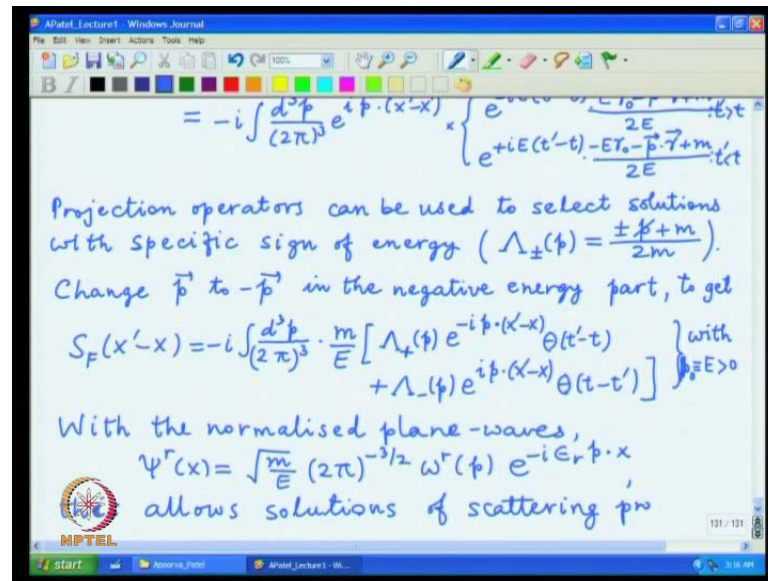 APatel_Lecture1 - Windows Journal
File Edit View Insert Actions Tools Help
100%
B I
= -i ∫ d³p/(2π)³ e^{i p·(x'-x)} × { 2E :t'>t
e^{+iE(t'-t)} (-Eγ₀-p⃗·γ⃗+m)/2E :t'<t
Projection operators can be used to select solutions
with specific sign of energy ( Λ±(p) = (±p̸+m)/2m ).
Change p⃗ to -p⃗ in the negative energy part, to get
S_F(x'-x) = -i ∫ d³p/(2π)³ · m/E [ Λ₊(p) e^{-ip·(x'-x)} Θ(t'-t) } with
+ Λ₋(p) e^{ip·(x'-x)} Θ(t-t') ] p₀≡E>0
With the normalised plane-waves,
Ψ^r(x) = √(m/E) (2π)^{-3/2} ω^r(p) e^{-iε_r p·x},
allows solutions of scattering pro
NPTEL
131 / 131
start Apoorva_Patel APatel_Lecture1 - Wi... 3:16 AM